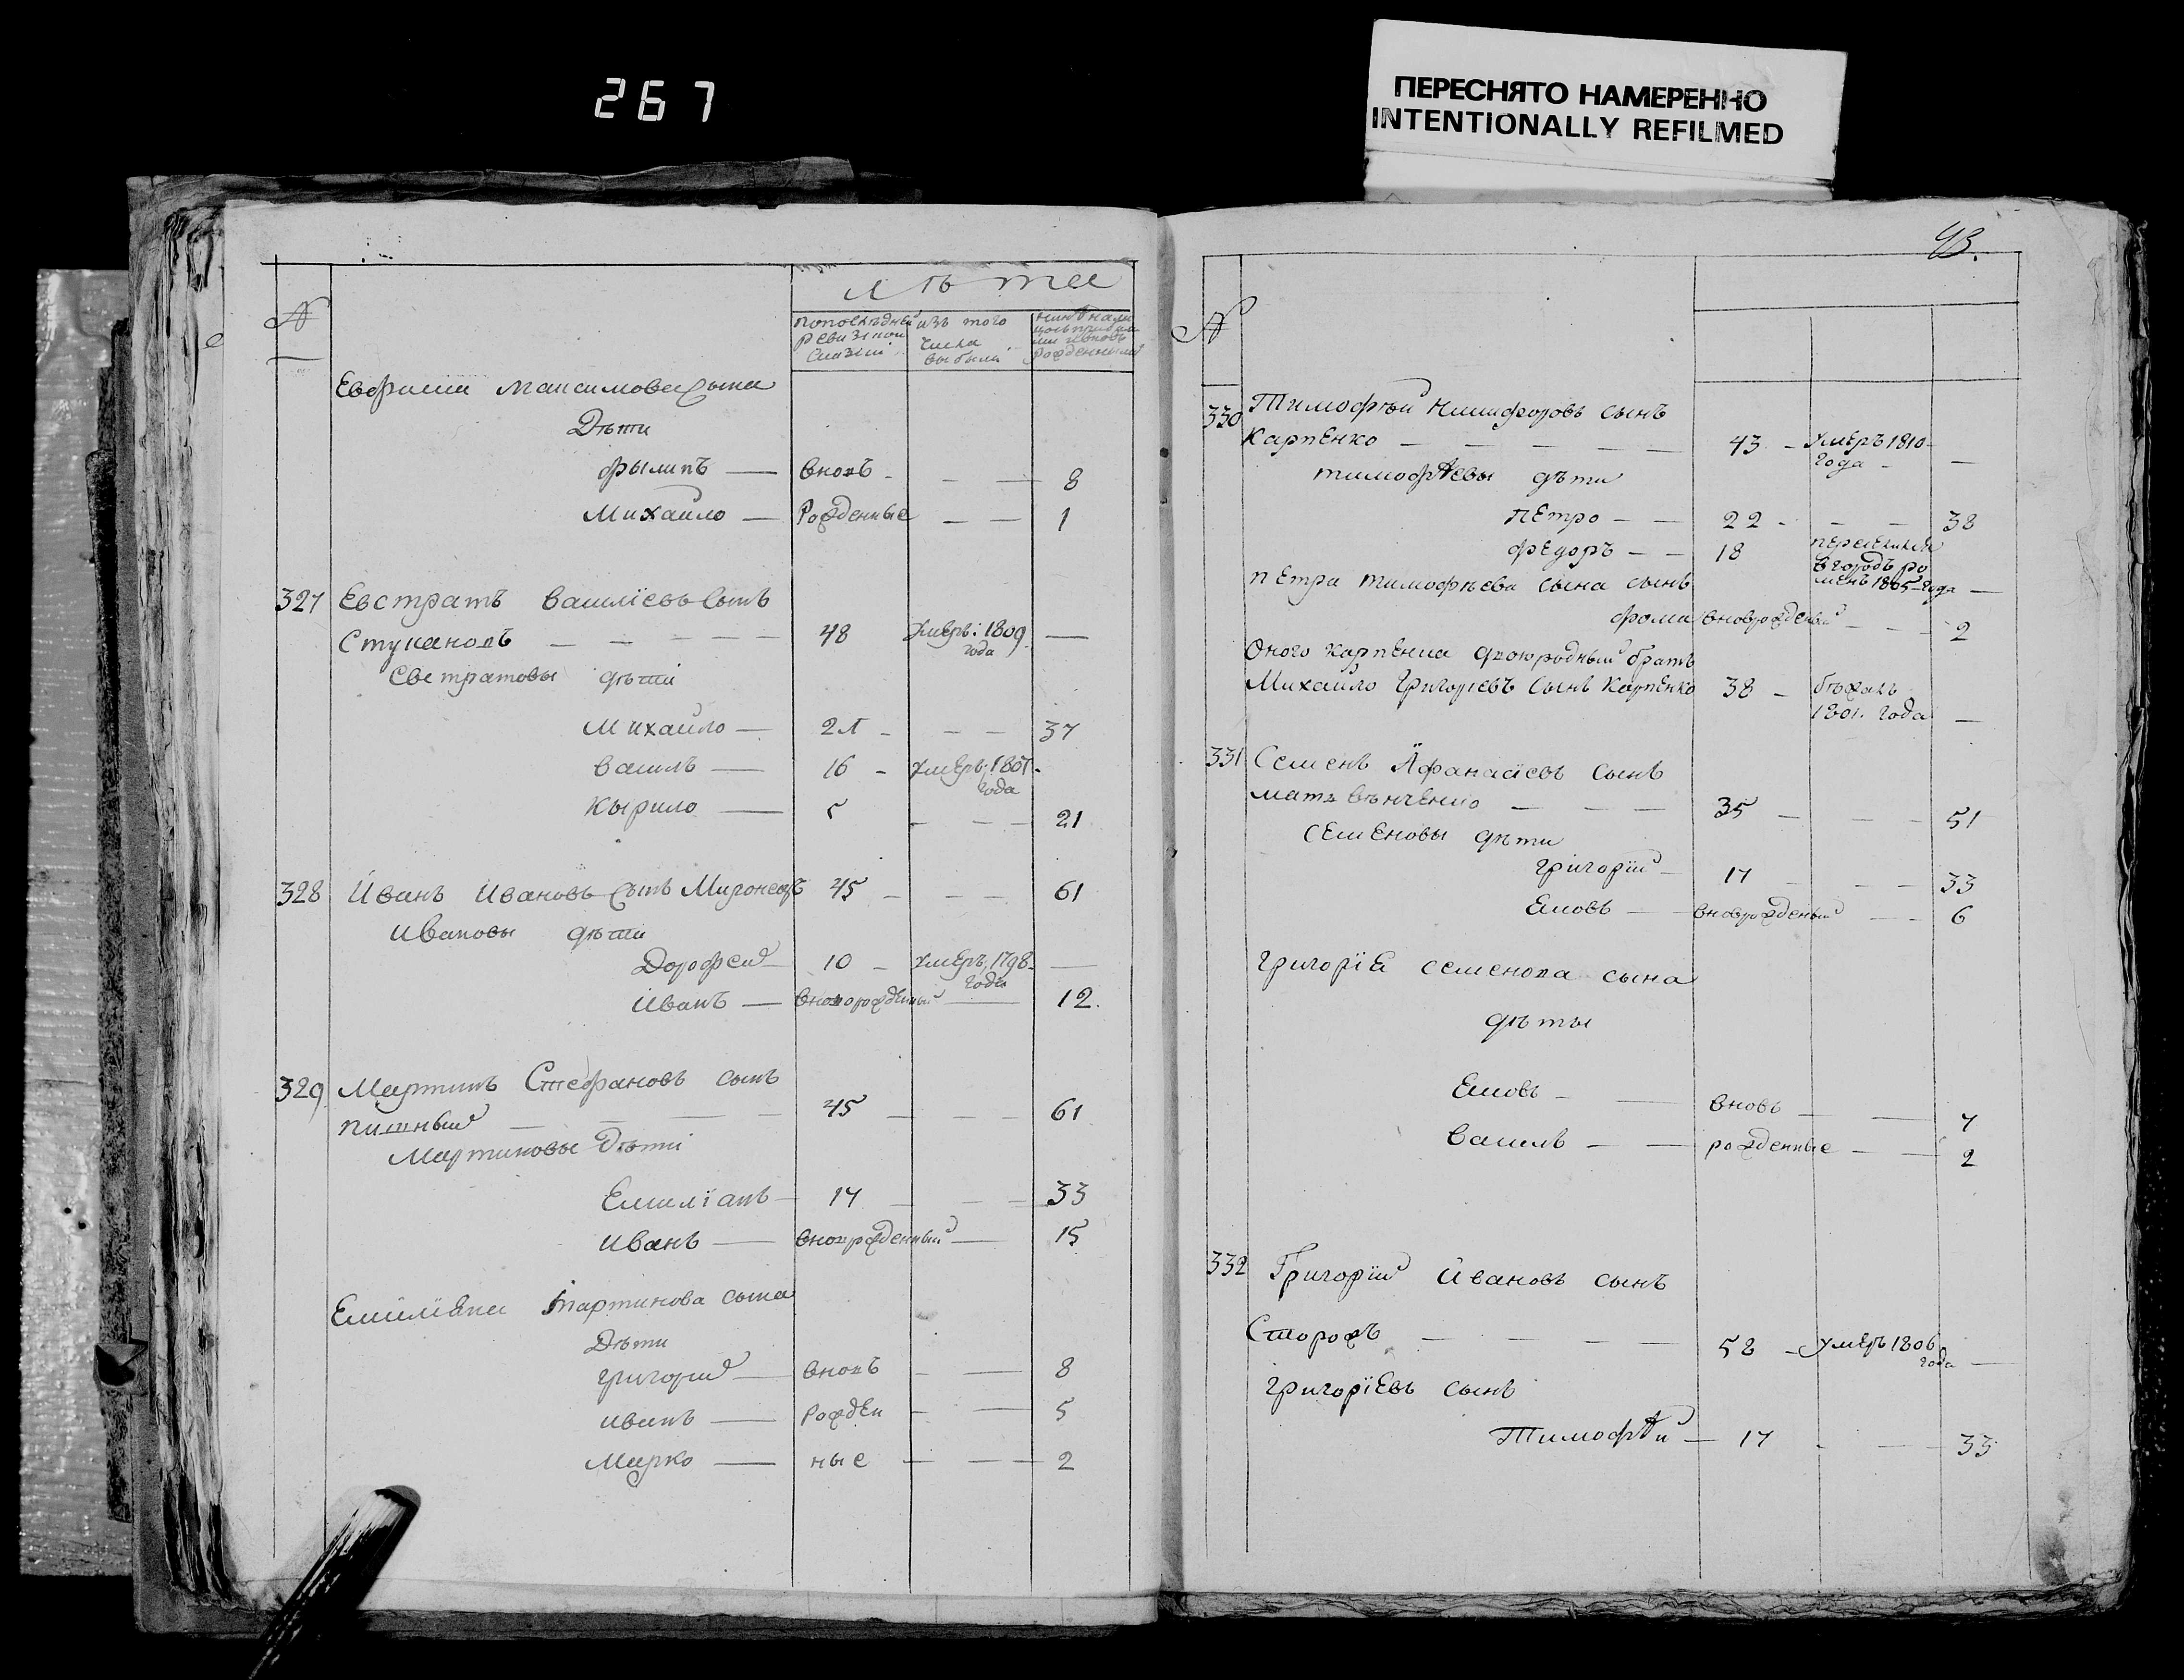 267
ПЕРЕСНЯТО НАМЕРЕННО
INTENTIONALLY REFILMED
№ лѣта
попоследней ревизской сказки изъ того числа выбыли
Ефрима Максимова Сына
Дѣти
Фылипъ — вновъ - — — 8
Михайло — Рожденные — — 1
327 Евстратъ Василïевъ Сынъ
Стукановъ — — — — 48 умеръ: 1809 года —
Евстратовы дѣти
Михайло — 21 - — — 37
василь — 16 - умеръ: 1801 - года
Кырило — 5 — — — 21
328 Иванъ Ивановъ Сынъ Миронецъ 45 — — — 61
Ивановы дѣти
Дорофей — 10 - умеръ: 1798 - года —
Иванъ — вноворожденный — 12.
329 Мартинъ Стефановъ сынъ
пишный — — — 45 — — — 61
Мартиновы Дѣти
Емилïанъ — 17 — — — 33
Иванъ — вноврожденный — 15
Емилïана Мартинова сына
Дѣти
григорий — вновъ — — 8
иванъ — Рожден — — 5
Марко — ные — — — 2
43.
№
330 Тимофѣй Никифоровъ сынъ
Карпенко — — — — — 43 - Умеръ 1810 - года - —
тимофѣевы дѣти
Петро — — 22 - — — 38
федоръ — — 18 переселился в городъ ромень 1805 года —
петра тимофѣева сына сынъ
фома вноврожденый — — — 2
Оного Карпенка двоюродный братъ
Михайло Григорïевъ Сынъ Карпенко 38 - бѣжалъ 1801. года —
331 Семенъ Афанасïевъ Сынъ
матвѣнченко — — — 35 — — — 51
Семеновы дѣти
григорïй — 17 — — — 33
Яковъ — вноврожденый — — 6
григорïя семенова сына
дѣты
Яковъ — — вновь — — 7
василь — — рожденные — — 2
332 Григорïй Ивановъ сынъ
Сторожъ — — — — 58 - умеръ 1806 года —
григорïевъ сынъ
Тимофѣй — 17 - — — 33